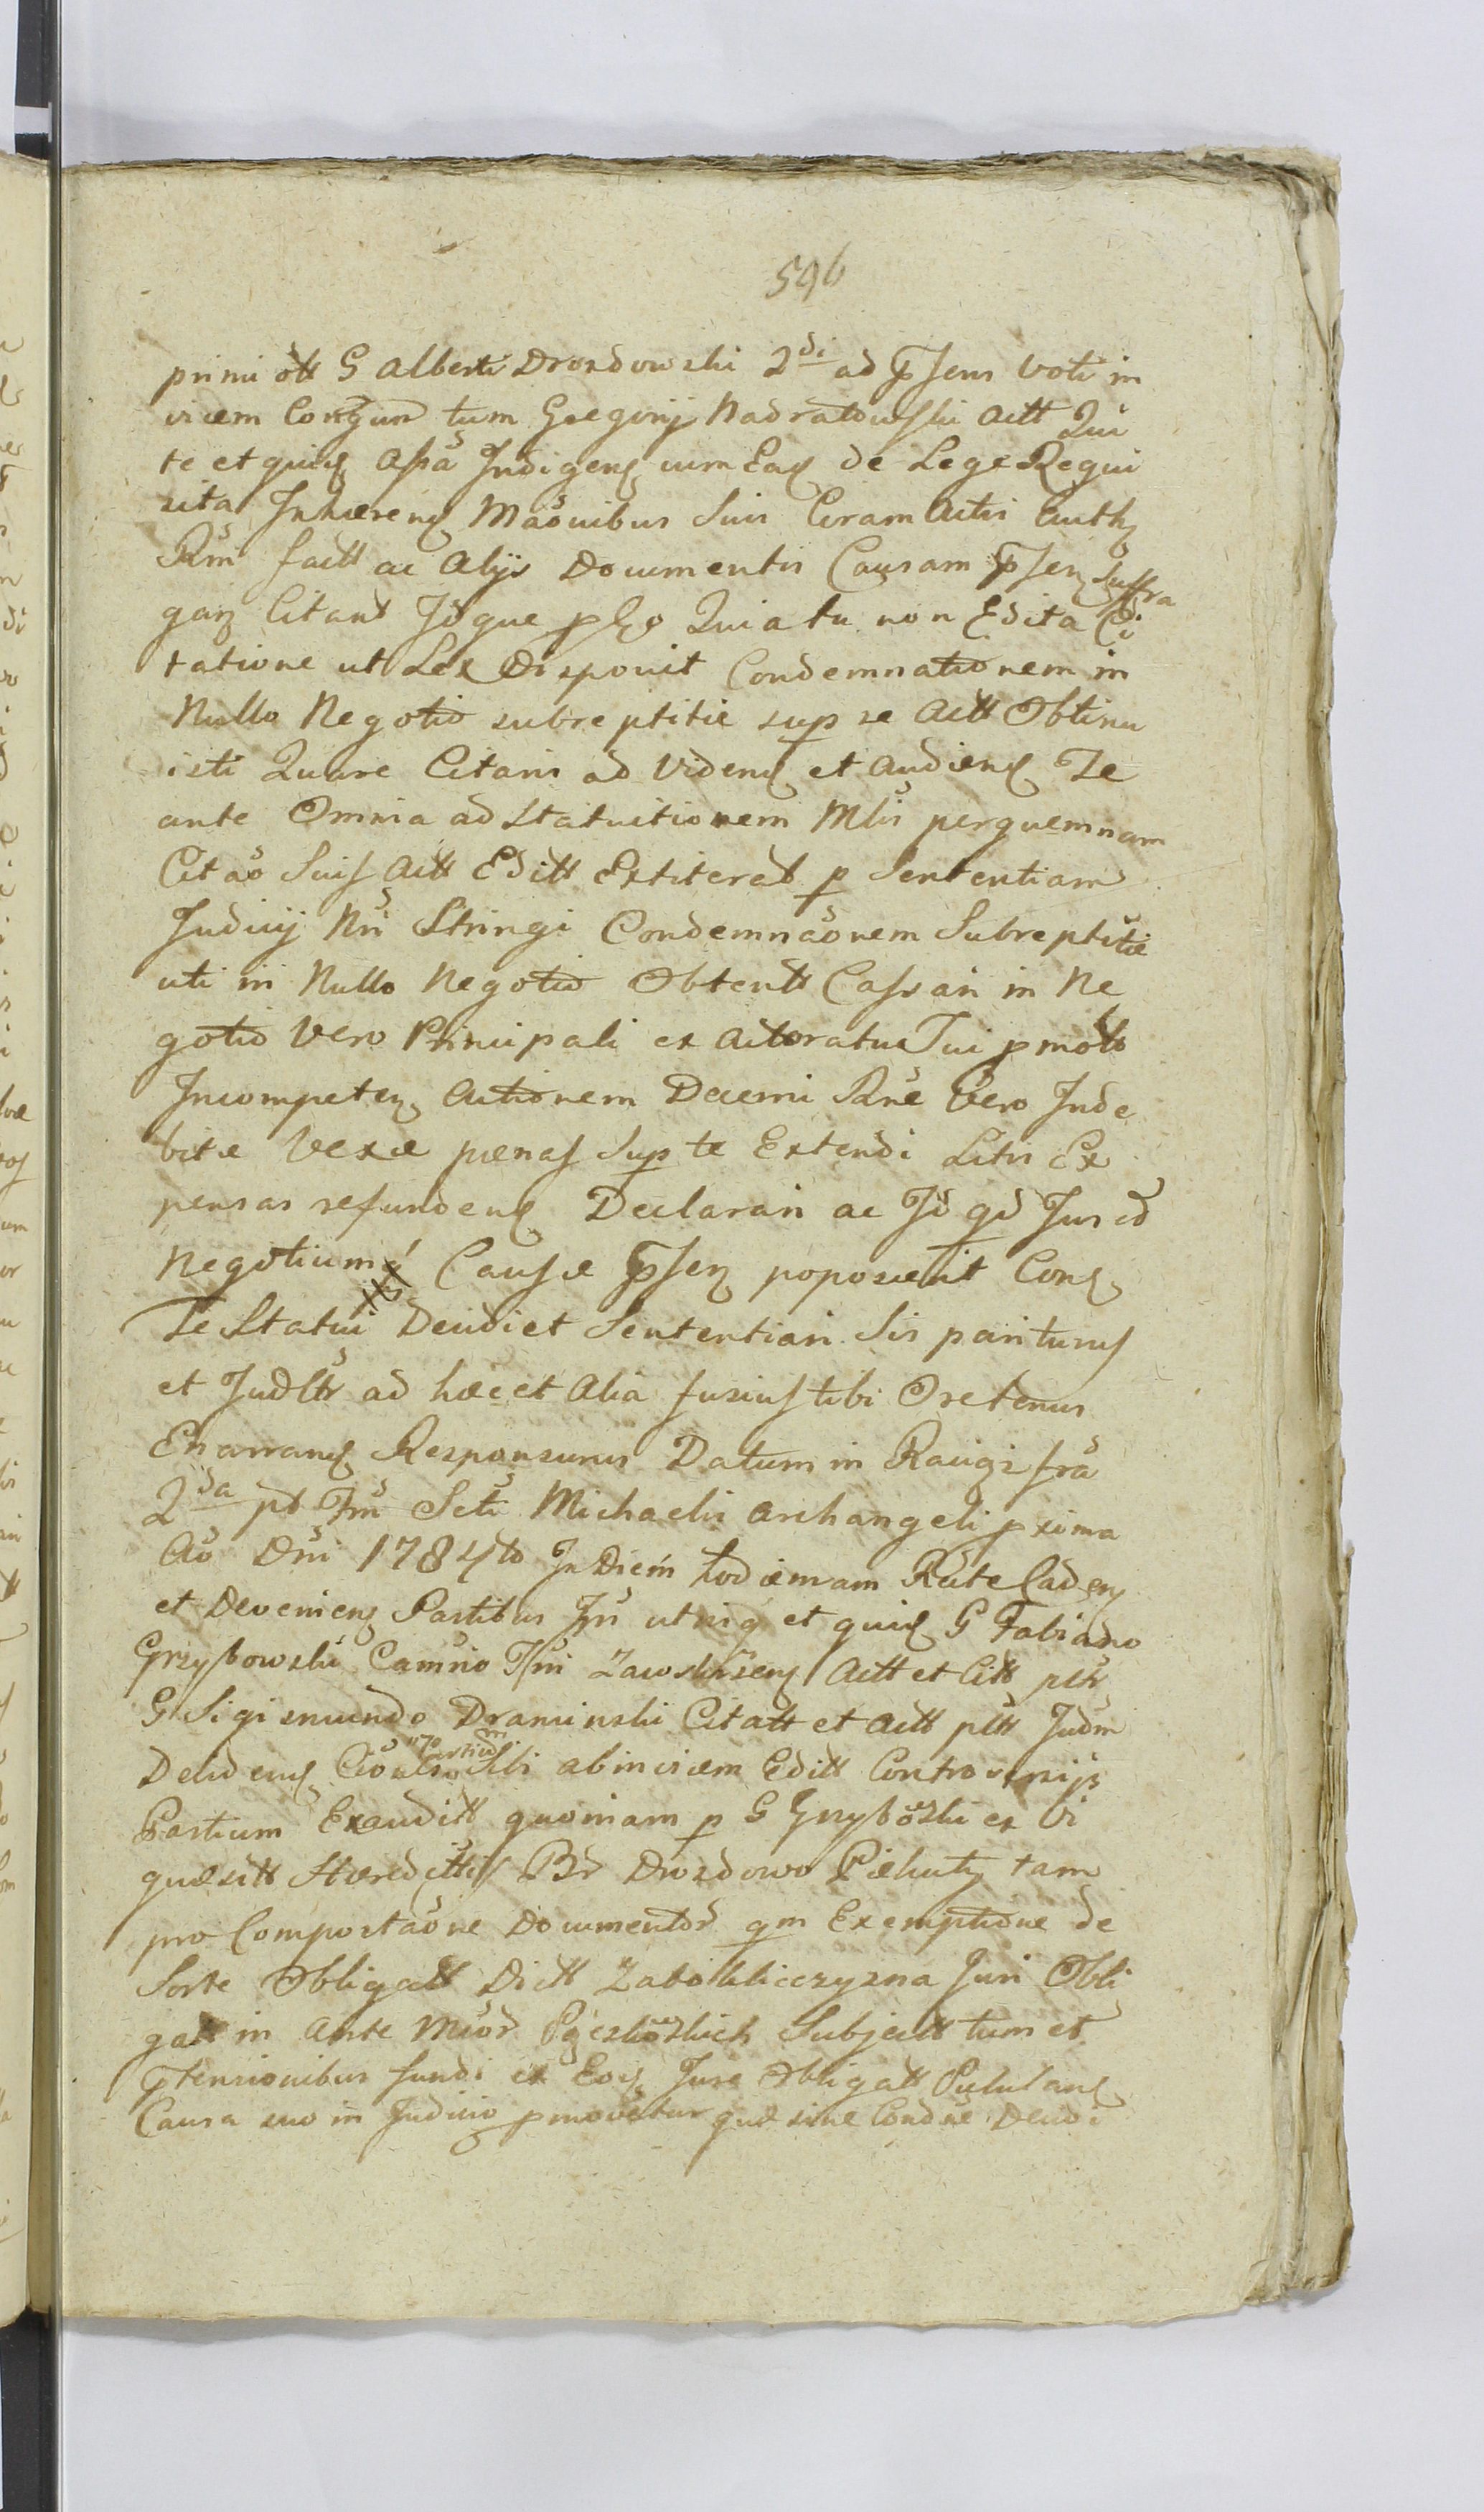 596
primi ott G Alberti Drozdowski 2di ad pſens Voti in
vicem Conjun tum Gregorij Nadratowſki Actt Qui
te et quivis Aſsa Indigens cum Eaq de Lege Requi
sita Inhærens Maonibus Suis Coram Actis Auth
Rm factt ac Alijs Documentis Causam pſen Suffra
gan Citant Idque Quia tu non Edita Ci
tatione ut Lex Disponit Condemnationem in
Nullo Negotio subreptitie sup se Actt Obtinu
isti Quare Citaris ad Videns et Audiens Te
ante Omnia ad Statuitionem Mlis per quem nam
Citao Suiſ Actt Editt Extiterat p Sententiam
Judicij Nri Stringi Condemnaonem Subreptitie
uti in Nullo Negotio Obtentt Caſsari in Ne
gotio Vero Principali ex Actoratu Tui pmoto
Incompeten Actionem Decerni Rne Vero Inde
bitæ Vexæ pœnaſ Sup te Extendi Litis Ex
pensas refundens Declarari ac Id qd Jus et
Negotium Cauſæ pſen poposcerit Cons
Te Statui Deudi et Sententiari Sis pariturus
et Judltr ad hæc et Alia fusiuſ tibi Oretenus
Enarrans Responsurus Datum in Raigr fra
2da pt Fm Scti Michaelis Archangeli pxima
Ao Dni 1784to In Diem hodiernam Rite Caden
et Devenien Partibus In utriq et quivis G Fabiano
Grzybowski Camrio Tri Zawskrzens Actt et Citt pltr
G Sigismundo Draminski Citatt et Actt pltt Judm
Delidens Sibi abinvicem Editt Controversijs
Partium Exauditt quoniam p G Grzybowski ex Vi
quæsitt Hæreditti Br Drozdowo Piekuty tam
pro Comportaone Documentor qm Exemptione de
Sorte Obligatt Dictt Zabokliczyzna Juri Obli
gatt in Ante Mior Subjectt tum et
ptensionibus fundi ex Eoq Jure Obligatt Pululans
Causa suo in Judicio pmovetur quæ sine Condne Deudi